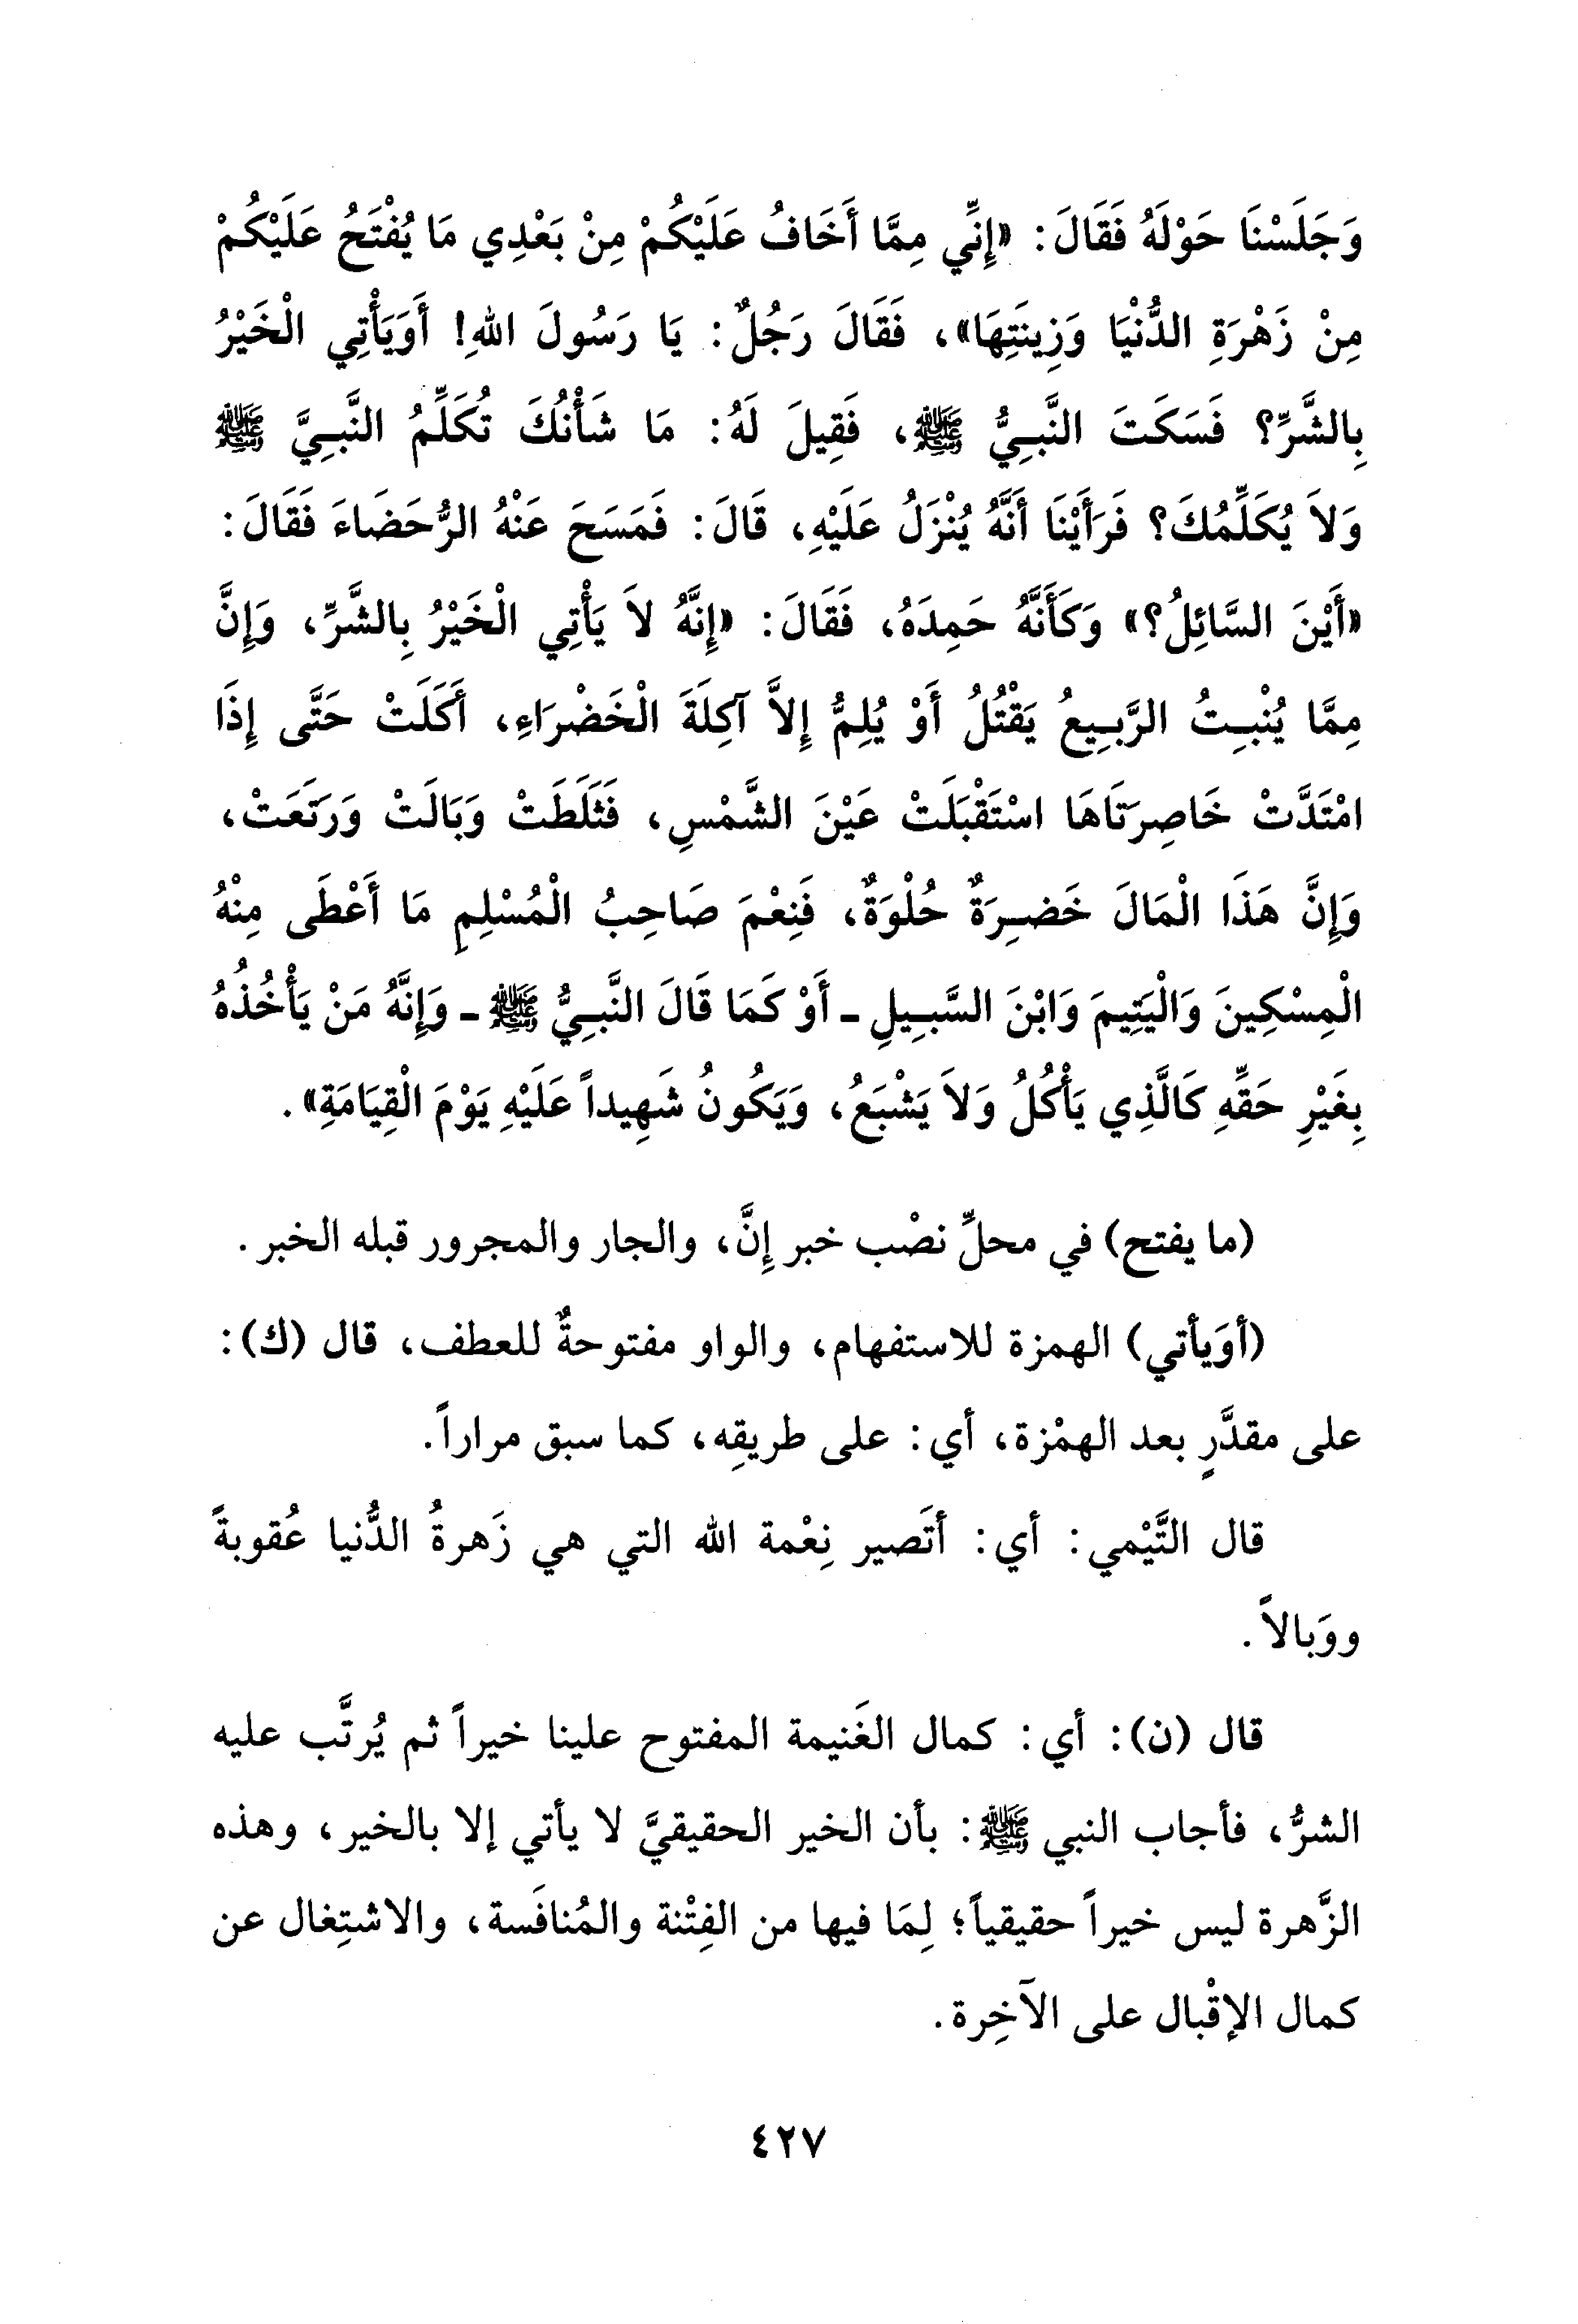 وَجَلَسْنَا حَوْلَهُ فَقَالَ: «إِنِّي مِمَّا أَخَافُ عَلَيْكُمْ مِنْ بَعْدِي مَا يُفْتَحُ عَلَيْكُمْ
مِنْ زَهْرَةِ الدُّنْيَا وَزِينَتِهَا»، فَقَالَ رَجُلٌ: يَا رَسُولَ اللهِ! أَوَيَأْتِي الْخَيْرُ
بِالشَّرِّ؟ فَسَكَتَ النَّبِيُّ ﷺ، فَقِيلَ لَهُ: مَا شَأْنُكَ تُكَلِّمُ النَّبِيَّ ﷺ
وَلاَ يُكَلِّمُكَ؟ فَرَأَيْنَا أَنَّهُ يُنْزَلُ عَلَيْهِ، قَالَ: فَمَسَحَ عَنْهُ الرُّحَضَاءَ فَقَالَ:
«أَيْنَ السَّائِلُ؟» وَكَأَنَّهُ حَمِدَهُ، فَقَالَ: «إِنَّهُ لاَ يَأْتِي الْخَيْرُ بِالشَّرِّ، وَإِنَّ
مِمَّا يُنْبِتُ الرَّبِيعُ يَقْتُلُ أَوْ يُلِمُّ إِلاَّ آكِلَةَ الْخَضْرَاءِ، أَكَلَتْ حَتَّى إِذَا
امْتَدَّتْ خَاصِرَتَاهَا اسْتَقْبَلَتْ عَيْنَ الشَّمْسِ، فَثَلَطَتْ وَبَالَتْ وَرَتَعَتْ،
وَإِنَّ هَذَا الْمَالَ خَضِرَةٌ حُلْوَةٌ، فَنِعْمَ صَاحِبُ الْمُسْلِمِ مَا أَعْطَى مِنْهُ
الْمِسْكِينَ وَالْيَتِيمَ وَابْنَ السَّبِيلِ - أَوْ كَمَا قَالَ النَّبِيُّ ﷺ - وَإِنَّهُ مَنْ يَأْخُذُهُ
بِغَيْرِ حَقِّهِ كَالَّذِي يَأْكُلُ وَلاَ يَشْبَعُ، وَيَكُونُ شَهِيداً عَلَيْهِ يَوْمَ الْقِيَامَةِ».
(ما يفتح) في محلِّ نصْب خبر إِنَّ، والجار والمجرور قبله الخبر.
(أوَيأتي) الهمزة للاستفهام، والواو مفتوحةٌ للعطف، قال (ك):
على مقدَّرٍ بعد الهمْزة، أي: على طريقِه، كما سبق مراراً.
قال التَّيْمي: أي: أتَصير نِعْمة الله التي هي زَهرةُ الدُّنيا عُقوبةً
ووَبالاً.
قال (ن): أي: كمال الغَنيمة المفتوح علينا خيراً ثم يُرتَّب عليه
الشرُّ، فأجاب النبي ﷺ: بأن الخير الحقيقيَّ لا يأتي إلا بالخير، وهذه
الزَّهرة ليس خيراً حقيقياً؛ لِمَا فيها من الفِتْنة والمُنافَسة، والاشتِغال عن
كمال الإقْبال على الآخِرة.
٤٢٧